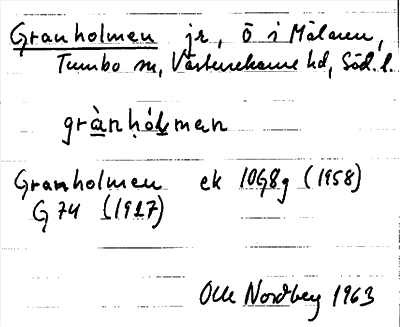 Granholmen jr, ö i Mälaren,
Tumbo sn, Västerrekarne hd, Söd. l.
grànhólmen
Granholmen ek 10G8g (1958)
G 74 (1917)
Olle Nordberg 1963